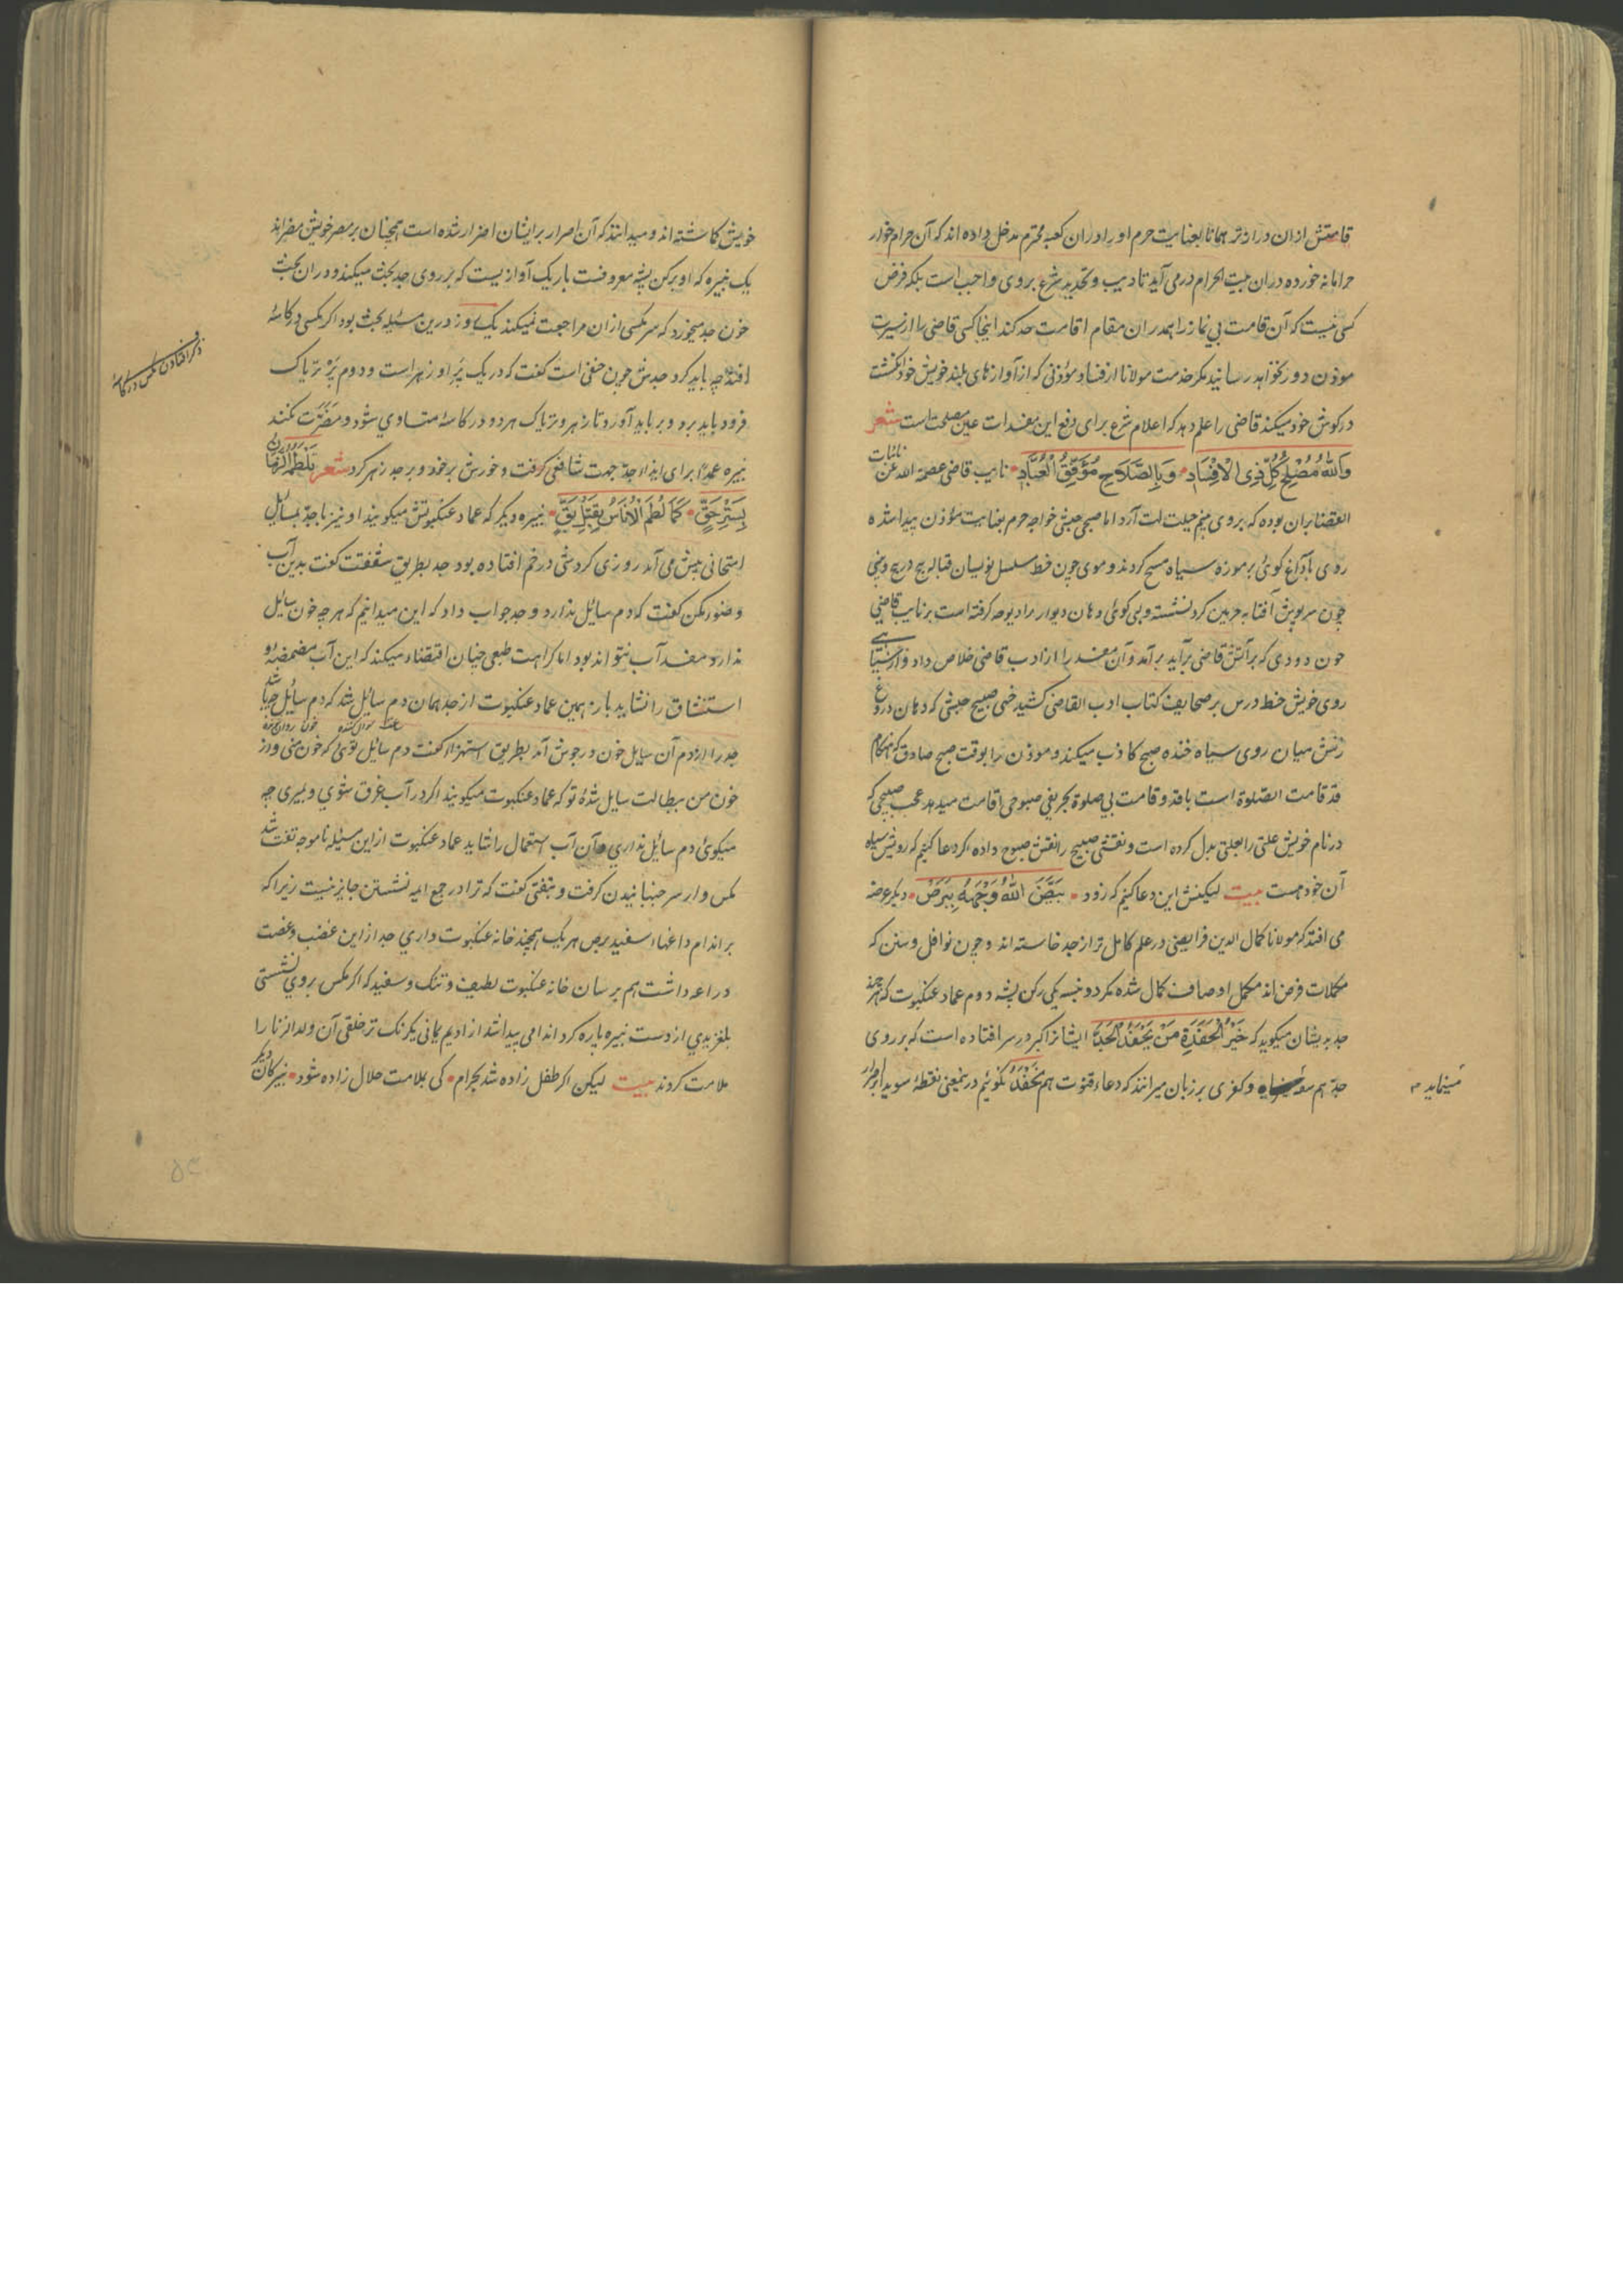 قامتش ازان دراز تر همانا بعنایت حرم او را دران کعبه محترم مدخل داده اند که آن حرام خوار
حرامانه خورده دران بیت الحرام درمی آید تادیب و تحدید شرع بروی واجب است بلکه فرض
کسی نیست که آن قامت بی نماز را همدران مقام اقامت حد کند اینجا کسی قاضی را از سیرت
موذن دور نخواهد رسانید مکر خدمت مولانا از فساد موذنی که از آوازهای بلند خویش خود انکشت
درکوش خود میکند قاضی را علم دهد که اعلام شرع برای دفع این مفسدات عین مصلحت است شعر
وَاللهُ مُصْلِحُ کُلِّ ذِی الْاِفْسَادِ وَبِالصَّلَاحِ مُوَفِّقُ الْعُبَّادِ نایب قاضی عصمه الله عن نائبات
القضا بران بوده که بروی پنجم حیلت لت آرد اما صبیح حبشی خواجه حرم بعنایت موذن پیدا شده
روی باداغ کوئی بر موزه سیاه مسح کردند و موی چون خط مسلسل نویسان قباله پیچ در پیچ و بینی
چون سرپوش آفتابه حرمین کرد نشسته وبی کوئی دهان دیوار را دیوچه کرفته است بر نایب قاضی
چون دودی که بر آتش قاضی برآید برآمد و آن مفسد را از ادب قاضی خلاص داد و از سیاهی
روی خویش خط درس بر صحایف کتاب ادب القاضی کشید خهی صبیح حبشی که دهان دروغ
زنش میان روی سیاه خنده صبح کاذب میکند و موذن را بوقت صبح صادق که هنکام
قد قامت الصلوة است با قد و قامت بی صلوة بحریفی صبوحی اقامت میدهد عجب صبیحی که
درنام خویش علتی را بعلتی بدل کرده است و نقش صبیح را نقش صبوح داده اکر دعا کنیم که رویش سیاه
آن خود هست بیت لیکنش این دعا کنیم که زود بَیَّضَ اللهُ وَجْهَهُ بِبَرَصْ دیکر عرضه
می افتد که مولانا کمال الدین فرایضی در علم کامل تر از جد خاسته اند و چون نوافل و سنن که
مکملات فرض اند مکمل اوصاف کمال شده مکر دو نبسه یکی رکن پشه دوم عماد عنکبوت که هر چند
جد بدیشان میکوید که خَیْرُ الْحَفَدَةِ مَنْ یَحْفَدُ الْجَدَّا ایشانرا کبر در سر افتاده است که بر روی
جد هم و کفری بر زبان میرانند که دعاء قنوت هم نَحْفِدُ نکوئیم در ینمعنی نقطهٔ سویدا بر اصرار
مینماید
خویش کماشته اند و میدانند که آن اصرار بر ایشان اضرار شده است همچنان بر مصر خویش مضر اند
یک نبیره که او برکن پشه معروفست باریک آوازیست که بر روی جد بحث میکند و دران بحث
خون جد میخورد که سر مکسی ازان مراجعت نمیکند یک روز درین مسئله بحث بود اکر مکسی در کاسهٔ
افتد چه باید کرد جدش چون حنفی است کفت که در یک پر او زهر است و دوم پر تریاک
فرود باید برد و بر باید آورد تا زهر و تریاک هر دو در کاسه متساوی شود و مضرت نکند
نبیره عمداً برای ایذاء جد جهت شافعی کرفت و خورش بر خود و بر جد زهر کرد شعر
بِسَتْرِ حَقٍّ کَمَا لُطِمَ الْاُنَاسُ نبیره دیکر که عماد عنکبوتش میکویند او نیز با جد بمسائل
امتحانی پیش می آمد روزی کردمشی در خم افتاده بود جد بطریق شفقت کفت بدین آب
وضو مکن کفت که دم سائل ندارد و جد جواب داد که این میدانیم که هر چه خون سائل
ندارد مفسد آب نتواند بود اما کراهت طبعی چنان اقتضاء میکند که این آب مضمضه و
استنشاق را نشاید باره همین عماد عنکبوت از جد همان دم سائل شد که دم سائل چه باشد
جد را از دم آن سایل خون در جوش آمد بطریق استهزاء کفت دم سائل توئی که خون منی و از
خون من ببطالت سایل شدهٔ تو که عماد عنکبوت میکویند اکر در آب غرق شوی و بمیری چه
میکوئی دم سائل نداری و آن آب استعمال را نشاید عماد عنکبوت از این مسئله ناموجه تفت شد
مکس وار سر جنبانیدن کرفت و بتفتی کفت که ترا در جمع ائمه نشستن جایز نیست زیرا که
بر اندام داغهاء سفید برص هریک همچند خانه عنکبوت داری جد از این غضب و غصت
دراعه داشت هم بر سان خانه عنکبوت لطیف و تنک و سفید که اکر مکس بروی نشستی
بلغزیدی از دست نبیره پاره کرد اندامی پیدا شد از ادیم یمانی یکرنک تر خلقی آن ولدالزنا را
ملامت کردند بیت لیکن اکر طفل زاده شد بحرام کی بلامت حلال زاده شود نبیرکان دیکر
ذکر افتادن مکس در کاسهٔ